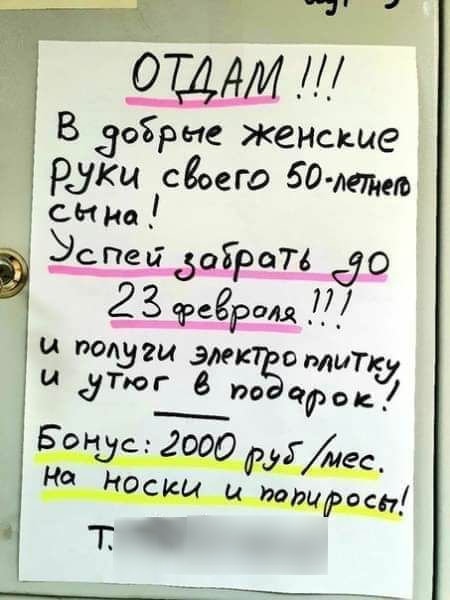 ОТДАМ !!!
В добрые женские
руки своего 50-летнего
сына!
Успей забрать до
23 февраля !!!
и получи электроплитку
и утюг в подарок!
Бонус: 2000 руб/мес.
на носки и папиросы!
Т.